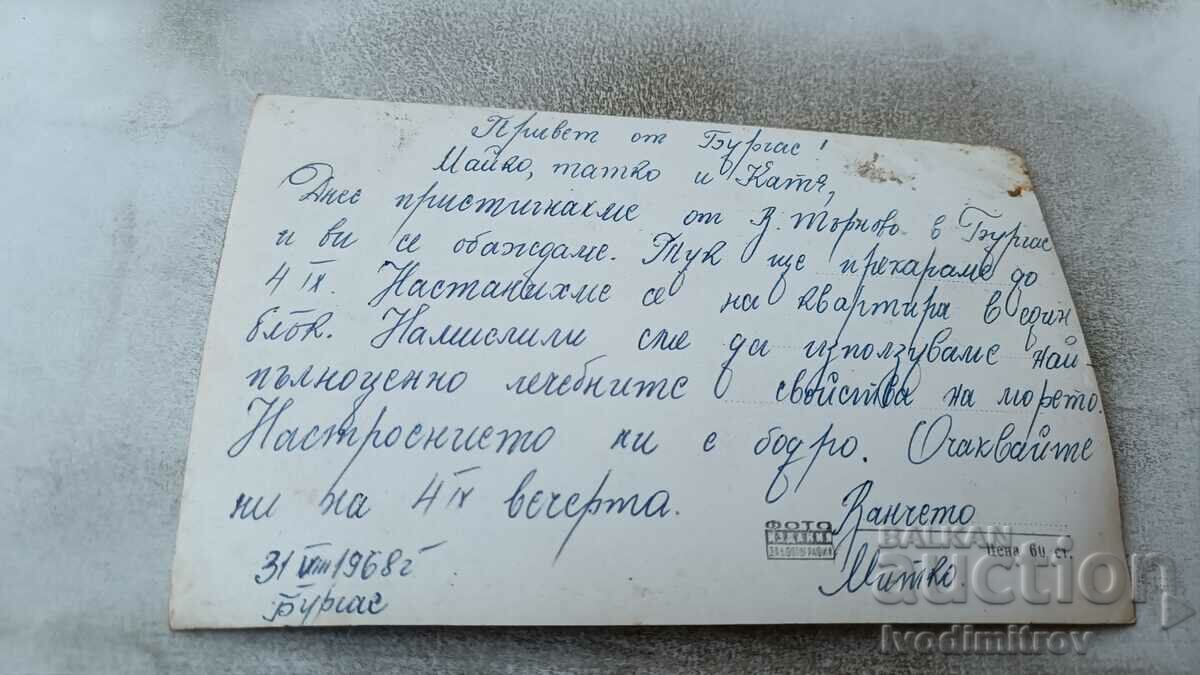 Привет от Бургас!
Майко, татко и Катя,
Днес пристигнахме от В. Търново в Бургас
и ви се обаждаме. Тук ще прекараме до
4 IX. Настанихме се на квартира в един
блок. Намислили сме да използуваме най
пълноценно лечебните свойства на морето.
Настроението ни е бодро. Очаквайте
ни на 4 IX вечерта.
Ванчето
Митко.
31 VIII 1968 г
Бургас
ФОТО
ИЗДАНИЕ
Цена 60 ст.
BALKAN
auction
Ivodimitrov